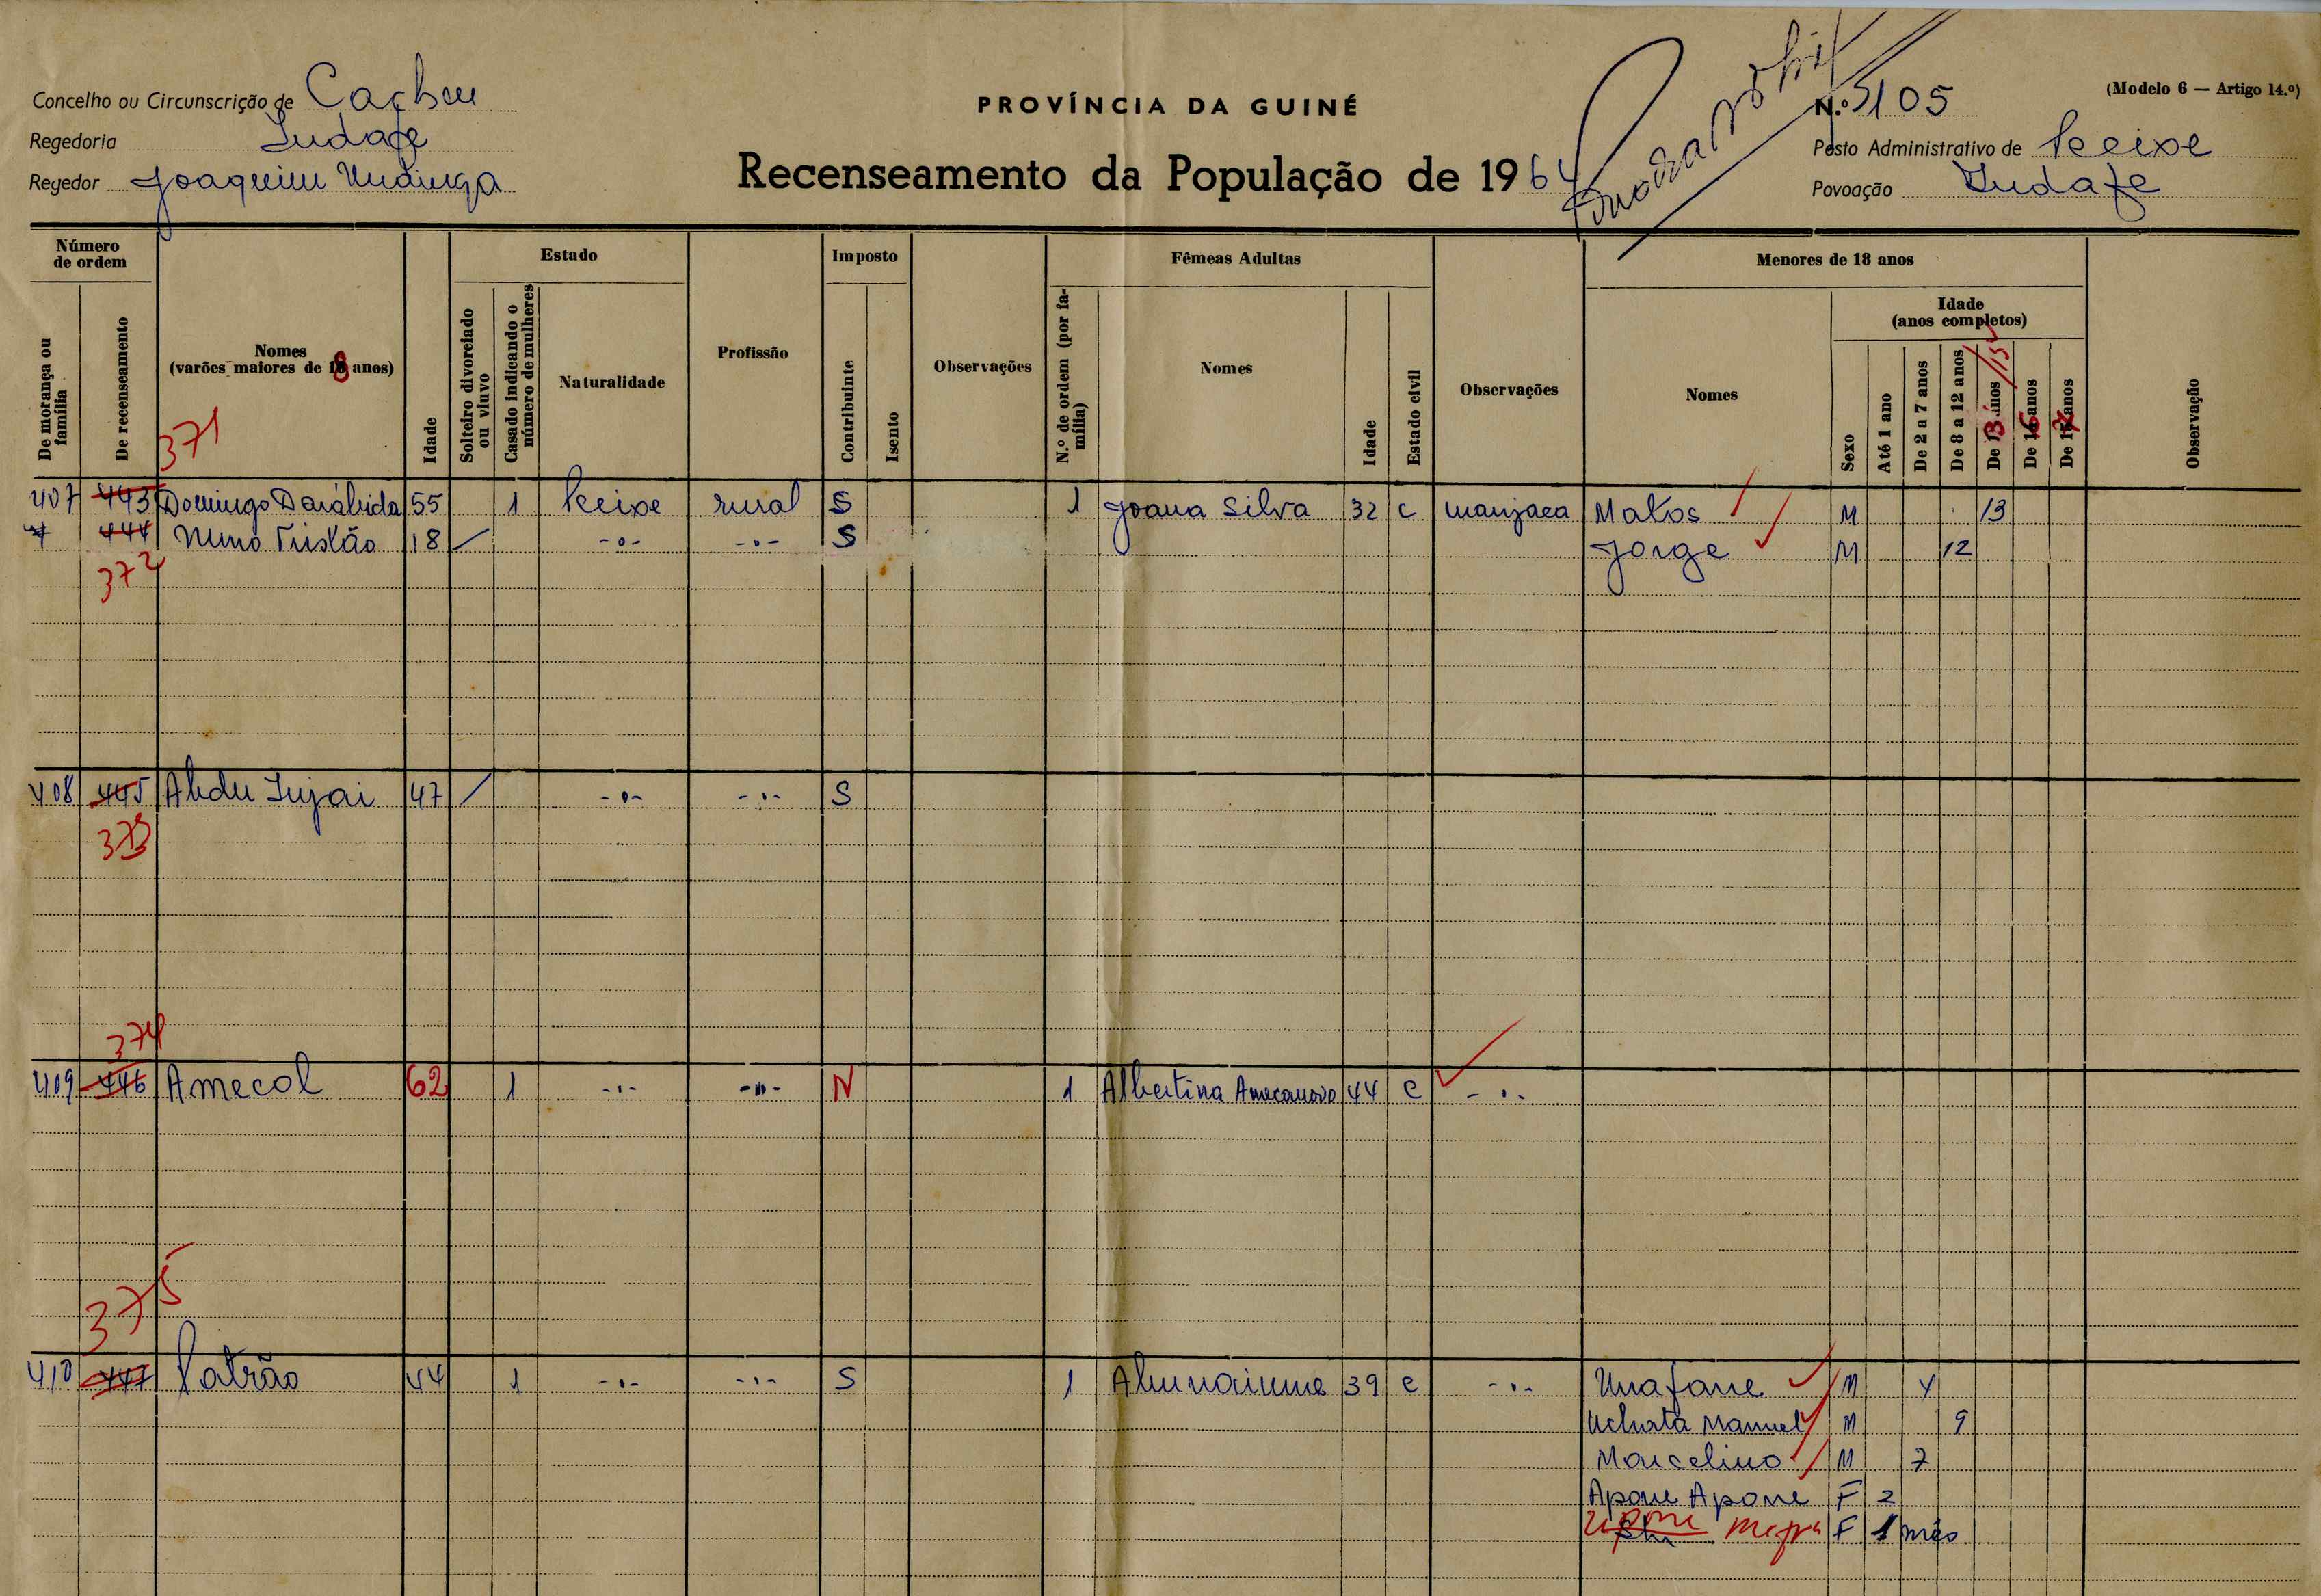 Concelho ou Circunscrição de Cacheu
PROVÍNCIA DA GUINÉ
N.º 5105
(Modelo 6 — Artigo 14.º)
Regedoria Indafe
Posto Administrativo de Peixe
Regedor Joaquim
Recenseamento da População de 1964
Povoação Indafe
Número de ordem
Estado
Imposto
Fêmeas Adultas
Menores de 18 anos
De morança ou família
De recenseamento
Nomes (varões maiores de 18 anos)
Idade
Solteiro divorciado ou viuvo
Casado indicando o número de mulheres
Naturalidade
Profissão
Contribuinte
Isento
Observações
N.º de ordem (por família)
Nomes
Idade
Estado civil
Observações
Nomes
Sexo
Idade (anos completos)
Até 1 ano
De 2 a 7 anos
De 8 a 12 anos
De 13 anos /15
De 16 anos
De 17 anos
Observação
371
407 443 Domingo 55 1 Peixe rural S 1 Joana Silva 32 C manjaca Matos M 13
444 Nuno Tristão 18 / -o- -o- S Jorge M 12
372
408 445 Abdu Injai 47 / -.- -.- S
373
374
409 446 Amecol 62 1 -.- -"- N 1 Albertina 44 C -.-
375
410 447 Patrão 44 1 -.- -.- S 1 39 C -.- Unafane M Y
Uchata Manuel M 9
Marcelino M 7
Apone Apone F 2
F 1 mês